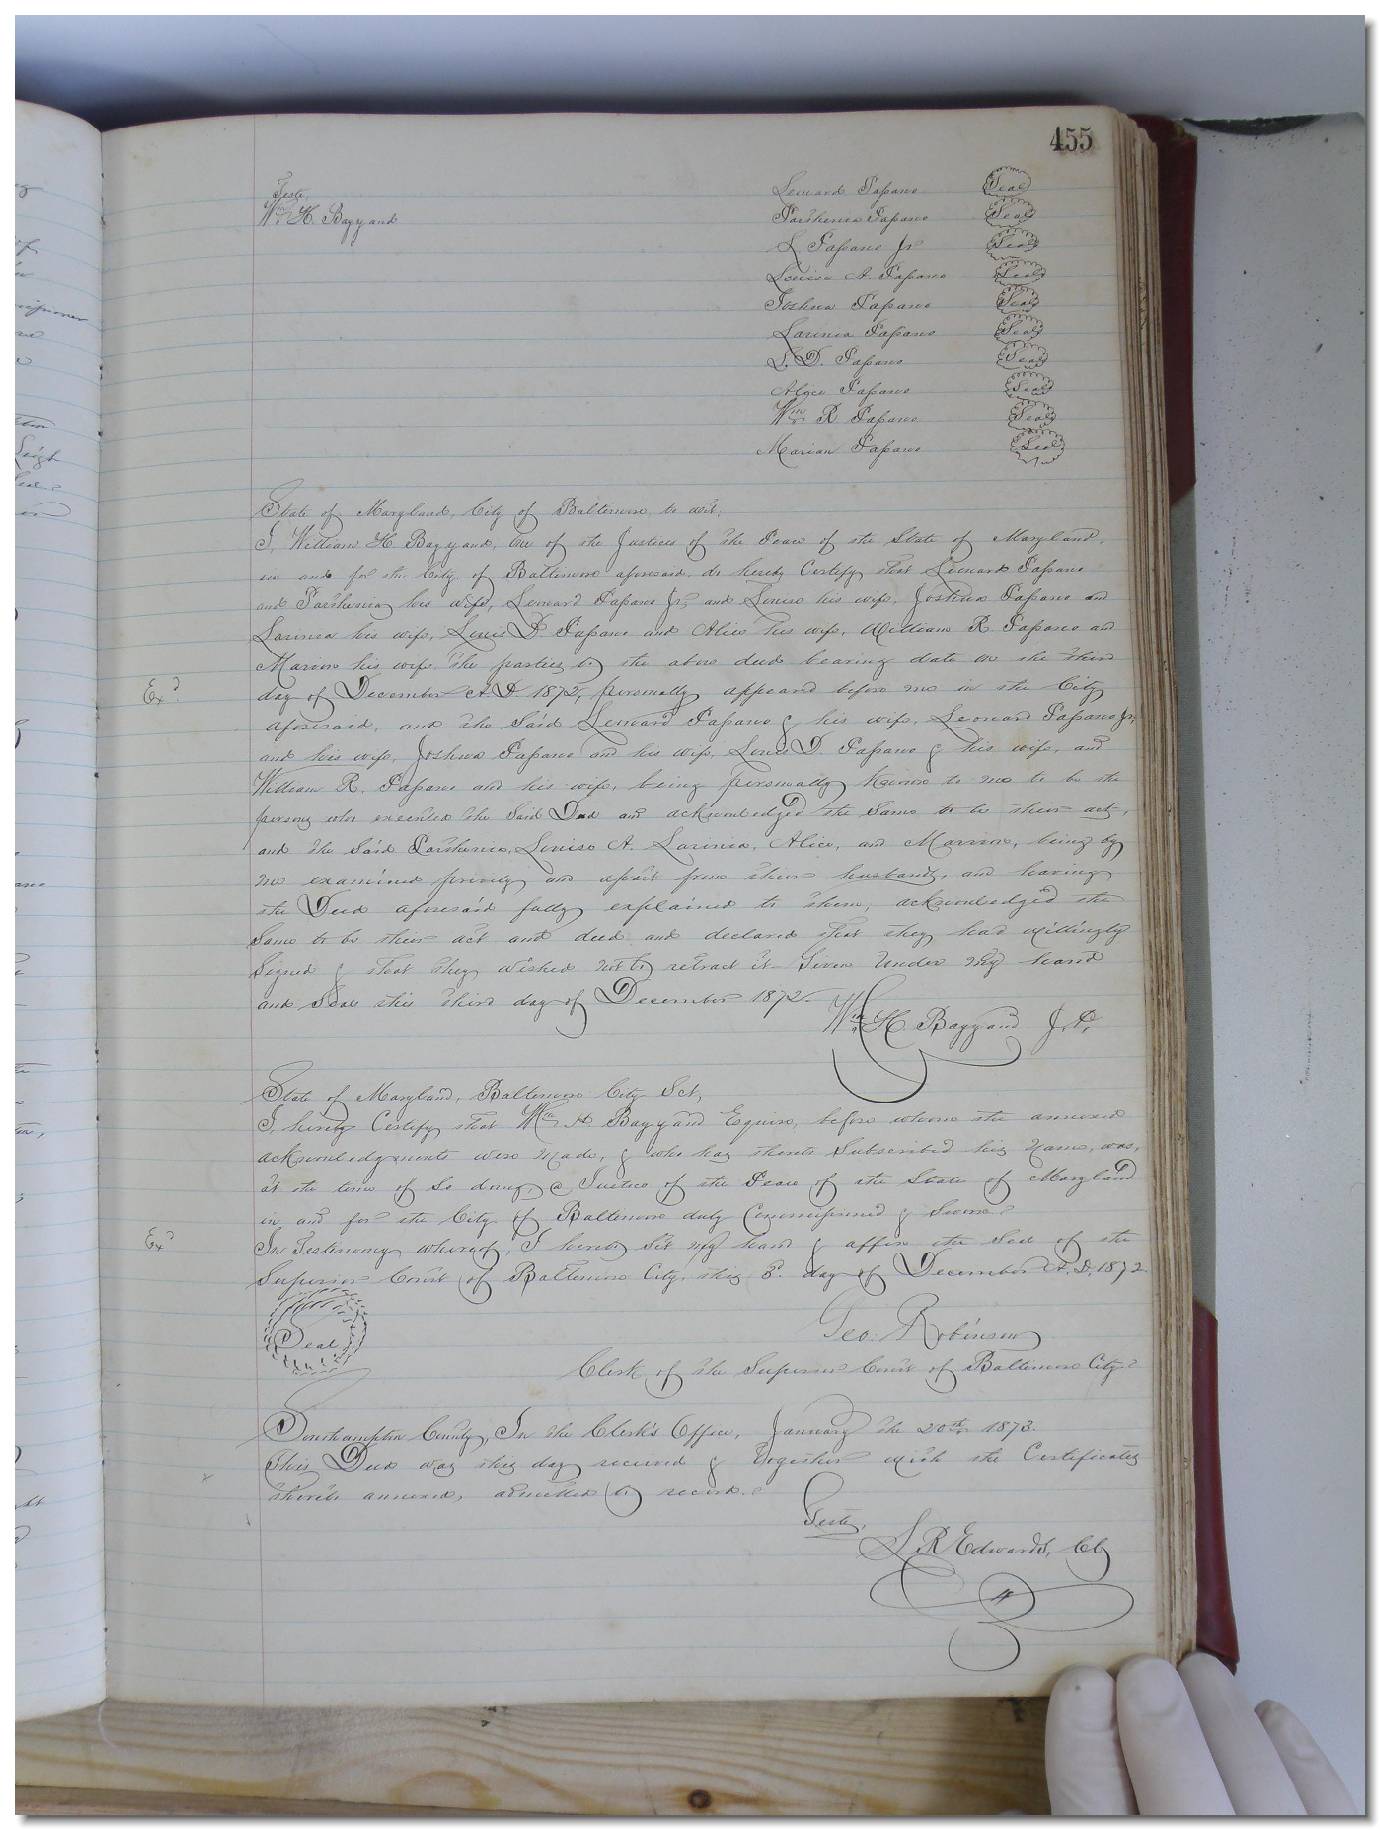 455
Teste
Wm H Bayzand
Leonard Passano Seal
Parthenia Passano Seal
L Passano Jr Seal
Louisa A. Passano Seal
Joshua Passano Seal
Lavinia Passano Seal
L. D. Passano Seal
Alice Passano Seal
Wm R Passano Seal
Marian Passano Seal
State of Maryland, City of Baltimore to wit;
I, William H Bayzand, One of the Justices of the Peace of the State of Maryland,
in and for the City of Baltimore aforesaid, do hereby Certify that Leonard Passano
and Parthenia his wife, Leonard Passano Jr, and Louisa his wife, Joshua Passano and
Lavinia his wife, Louis D. Passano and Alice his wife, William R Passano and
Marion his wife the parties to the above deed bearing date on the third
Exd
day of December A D 1872, personally appeared before me in the City
aforesaid, and the Said Leonard Passano & his wife, Leonard Passano Jr,
and his wife, Joshua Passano and his wife, Louis D. Passano & his wife, and
William R. Passano and his wife, being personally known to me to be the
persons who executed the Said Deed and acknowledged the Same to be their act,
and the Said Parthenia, Louisa A. Lavinia, Alice, and Marion, being by
me examined privily and apart from their husbands, and having
the Deed aforesaid fully explained to them, acknowledged the
Same to be their act and deed and declared that they had willingly
Signed & that they wished not to retract it. Given Under My hand
and Seal this third day of December 1872.
Wm H Bayzand J.P.
State of Maryland, Baltimore City Sct,
I, hereby Certify that Wm H Bayzand Esquire, before whom the annexed
acknowledgments were Made, & who has thereto Subscribed his Name, was,
at the time of So doing, a Justice of the Peace of the State of Maryland
in and for the City of Baltimore duly Commissioned & Sworn.
Exd
In Testimony whereof, I hereto Set my hand & affix the Seal of the
Superior Court of Baltimore City, this 3. day of December A.D. 1872
Seal
Geo. Robinson
Clerk of the Superior Court of Baltimore City.
Northampton County, In the Clerk's Office, January the 20th 1873.
This Deed was this day received & together with the Certificates
thereto annexed, admitted to record.
Teste,
L R Edwards, Clk